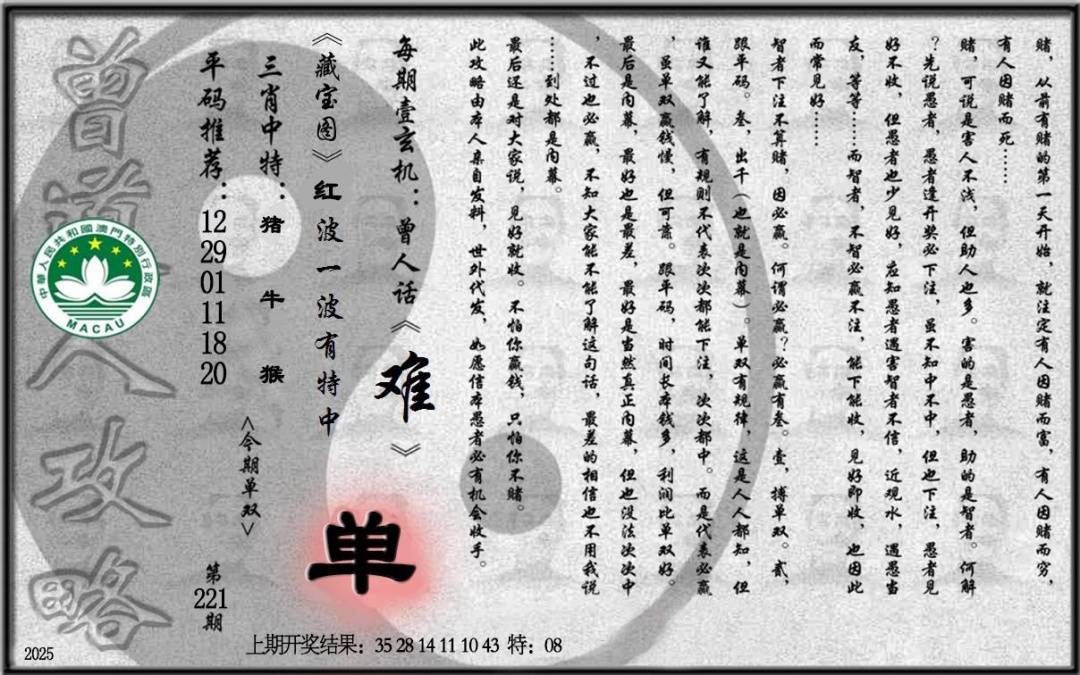 赌，从前有赌的第一天开始，就注定有人因赌而富，有人因赌而穷，
有人因赌而死……
赌，可说是害人不浅，但助人也多。害的是愚者，助的是智者。何解
？先说愚者，愚者逢开奖必下注，虽不知中不中，但也下注，愚者见
好不收，但愚者也少见好，应知愚者遇害智者不信，近观水，遇愚当
友，等等……而智者，不智必赢不注，能下能收，见好即收，也因此
而常见好……
智者下注不算赌，因必赢。何谓必赢？必赢有叁。壹，搏单双。贰，
跟平码。叁，出千（也就是内幕）。单双有规律，这是人人都知，但
谁又能了解，有规则不代表次次都能下注，次次都中。而是代表必赢
，虽单双赢钱慢，但可靠。跟平码，时间长本钱多，利润比单双好。
最后是内幕，最好也是最差，最好是当然真正内幕，但也没法次次中
，不过也必赢，不知大家能不能了解这句话，最差的相信也不用我说
……到处都是内幕。
最后还是对大家说，见好就收。不怕你赢钱，只怕你不赌。
此攻略由本人亲自发料，世外代发，如愿信本愚者必有机会收手。
每期壹玄机：曾人话《难》
《藏宝图》红波一波有特中
单
三肖中特：猪 牛 猴
<今期单双>
平码推荐：12 29 01 11 18 20
第221期
曾道人攻略
中華人民共和國澳門特別行政區
MACAU
上期开奖结果：35 28 14 11 10 43 特：08
2025